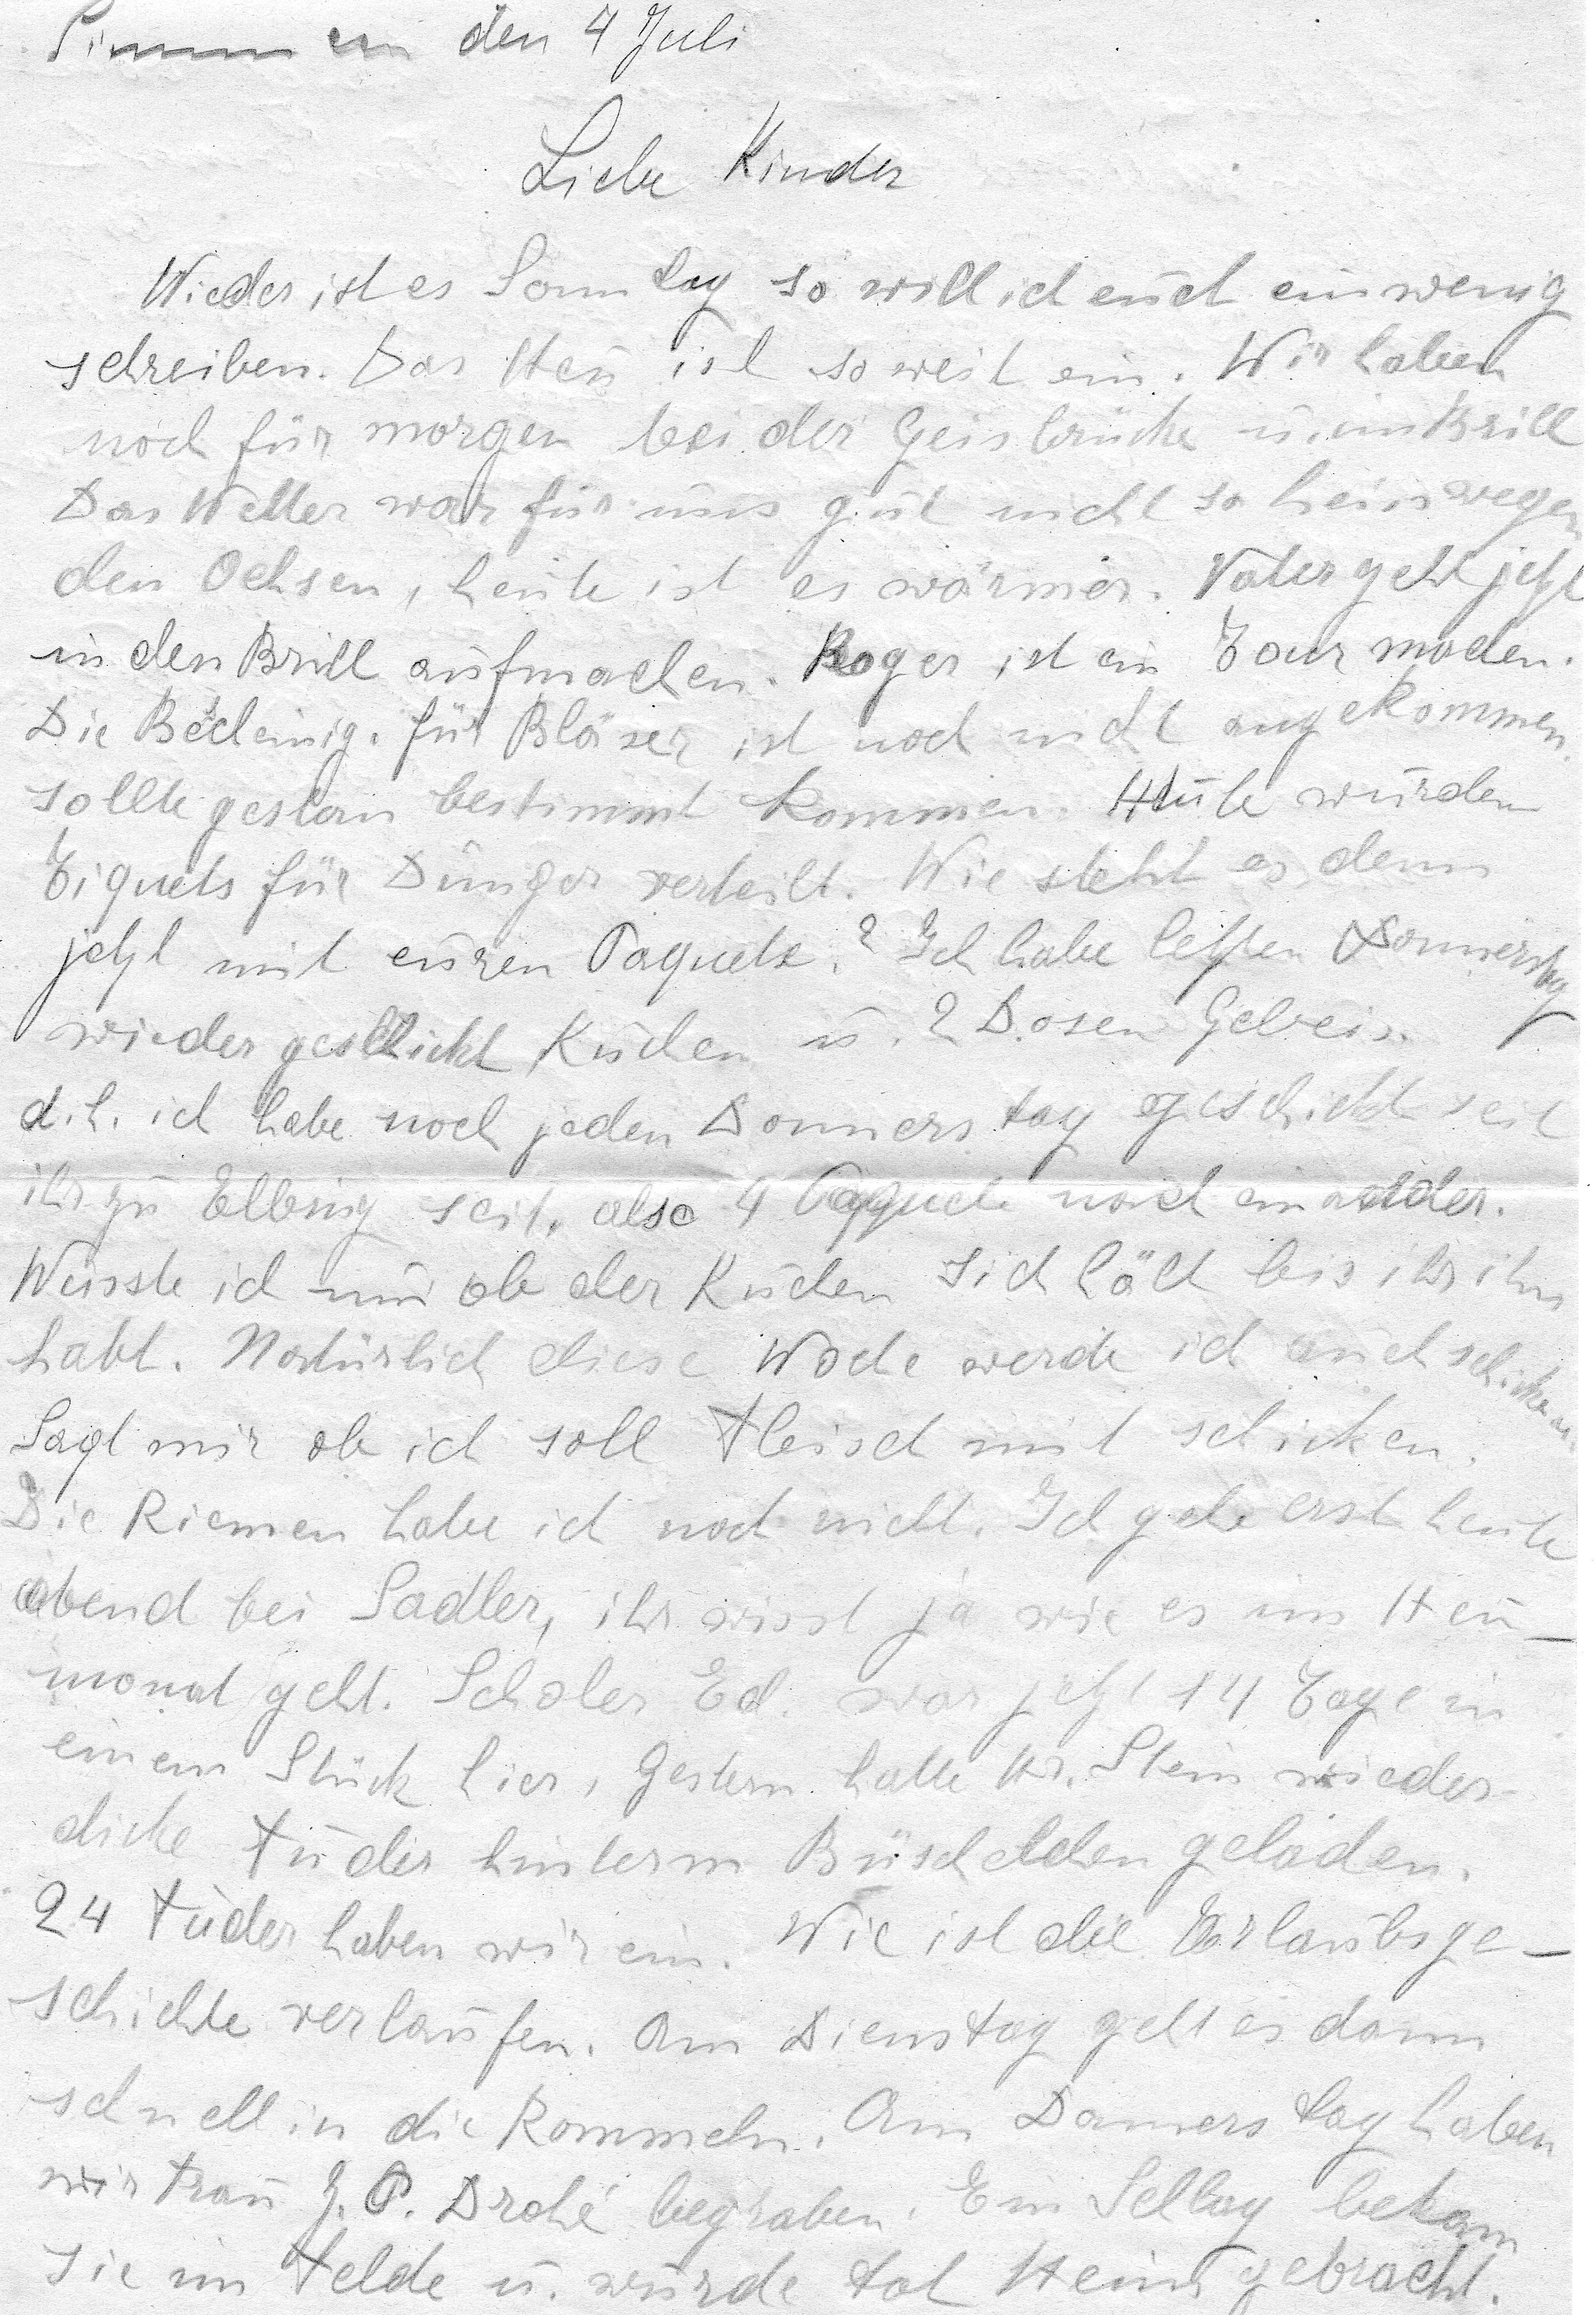 den 4 Juli
Liebe Kinder
Wieder ist es Sonntag so will ich euch ein wenig
schreiben. Das Heu ist soweit ein. Wir haben
noch für morgen bei der Geisbrücke u. im Brill
Das Wetter war für uns gut nicht so heiss wegen
den Ochsen, heute ist es wärmer. Vater geht jetzt
in den Brill aufmachen. Roger ist ein Tour machen.
Die Bescheinig. für Bläser ist noch nicht angekommen,
sollte gestern bestimmt kommen. Heute wurden
Tiquets für Dünger verteilt. Wie steht es denn
jetzt mit euren Paquets.? Ich habe letzten Donnerstag
wieder geschickt Kuchen u. 2 Dosen Gebeis.
d.h. ich habe noch jeden Donnerstag geschickt seit
ihr zu Elbing seit, also 4 Paquete nacheinander.
Wüsste ich nur ob der Kuchen sich hält bis ihr ihn
habt. Natürlich diese Woche werde ich auch schicken.
Sagt mir ob ich soll Fleisch mit schicken.
Die Riemen habe ich noch nicht. Ich gehe erst heute
abend bei Sadler, ihr wisst ja wie es im Heu-
monat geht. Scholer Ed. war jetzt 14 Tage in
einem Stück hier, Gestern hatte Hr. Stein wieder
dicke Fuder hinterm Büschelchen geladen.
24 Fuder haben wir ein. Wie ist die Urlaubsge-
schichte verlaufen. Am Dienstag geht es dann
schnell in die Rommeln. Am Donnerstag haben
wir Frau J. P. Drohé begraben. Ein Schlag bekam
sie im Felde u. wurde tot Heim gebracht.